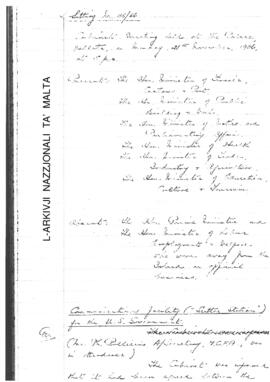 Sitting No. 46/66
Cabinet Meeting held at the Palace,
Valletta, on Monday, 21st November, 1966,
at 5 p.m.
Present: The Hon. Minister of
Customs & Port
The Hon. Minister of Public
Building & Works
The Hon. Minister of Justice and
Parliamentary Affairs
The Hon. Minister of Health
The Hon. Minister of Trade,
Industry & Agriculture
The Hon. Minister of Education,
Culture & Tourism
L-ARKIVJI NAZZJONALI TA' MALTA
Absent: The Hon. Prime Minister and
The Hon. Minister of Labour
Employment & Welfare
who were away from the
Island on official
business.
Communications facility
for the U.S. Government
(Mr.
in attendance)
The Cabinet was informed
that it had been agreed between the